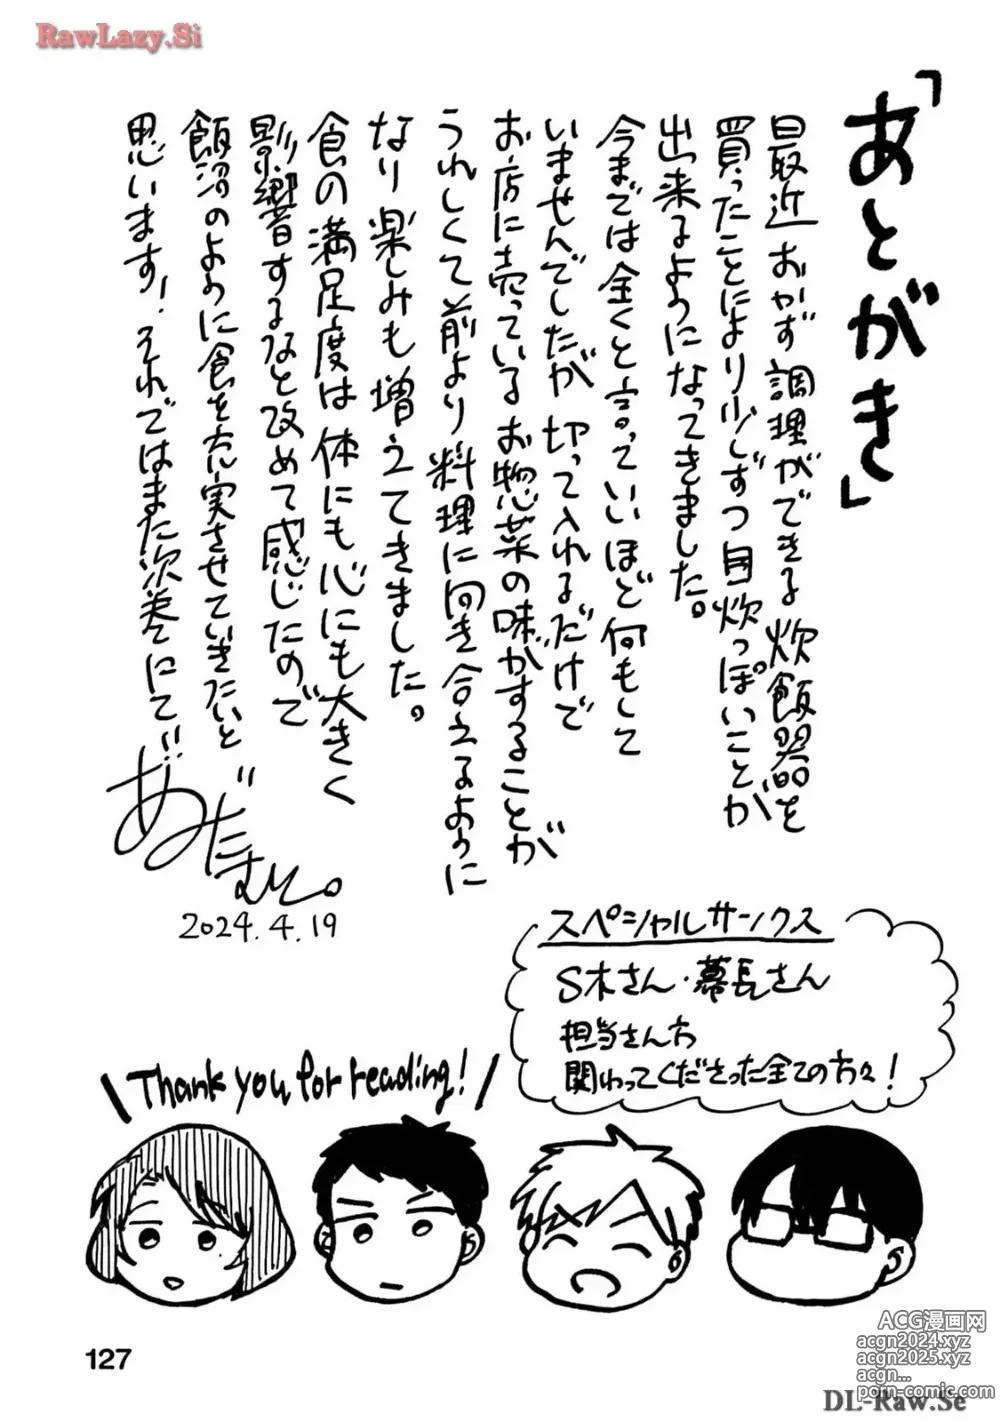 RawLazy.Si
「あとがき」
最近おかず調理ができる炊飯器を
買ったことにより少しずつ自炊っぽいことが
出来るようになってきました。
今までは全くと言っていいほど何もして
いませんでしたが切って入れるだけで
お店に売っているお惣菜の味がすることが
うれしくて前より料理に向き合えるように
なり楽しみも増えてきました。
食の満足度は体にも心にも大きく
影響するなと改めて感じたので
飯沼のように食を充実させていきたいと
思います!それではまた次巻にて!!
2024.4.19
スペシャルサンクス
S木さん・幕長さん
担当さん方
関わってくださった全ての方々!
Thank you for reading!
127
ACG漫画网
acgn2024.xyz
acgn2025.xyz
acgn...
porn-comic.com
DL-Raw.Se